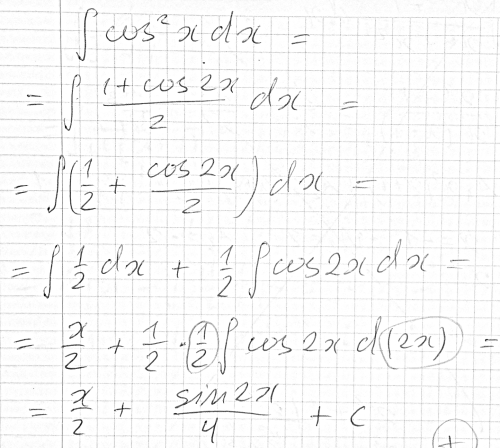 ∫ cos² x dx =
= ∫ (1 + cos 2x)/2 dx =
= ∫ (1/2 + cos 2x/2) dx =
= ∫ 1/2 dx + 1/2 ∫ cos 2x dx =
= x/2 + 1/2 · 1/2 ∫ cos 2x d(2x) =
= x/2 + sin 2x/4 + c
+